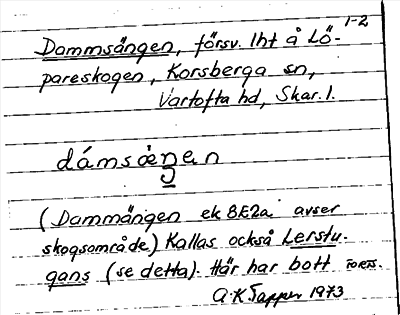 1-2
Dammsängen, försv. lht å Lö-
pareskogen, Korsberga sn,
Vartofta hd, Skar. l.
dámsæŋen
(Dammängen ek 8E2a avser
skogsområde) Kallas också Lerstu-
gans (se detta). Här har bott FORTS.
A.K Tapper 1973